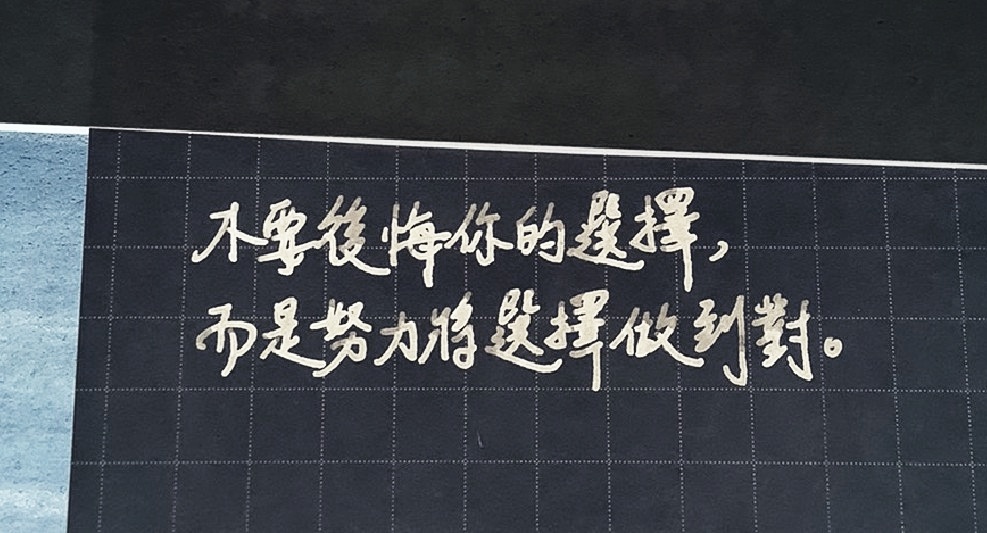 不要後悔你的選擇，
而是努力將選擇做到對。